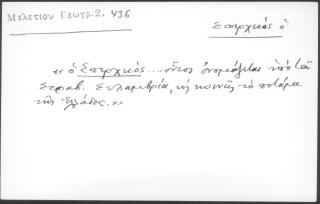 Μελετίου Γεωγρ. 2. 436
Σπερχειός ὁ
«ὁ Σπερχειός .... οὗτος ὀνομάζεται ὑπὸ τοῦ
Στραβ. κοινῶς τὸ ποτάμι
τῆς Ἑλλάδος.»